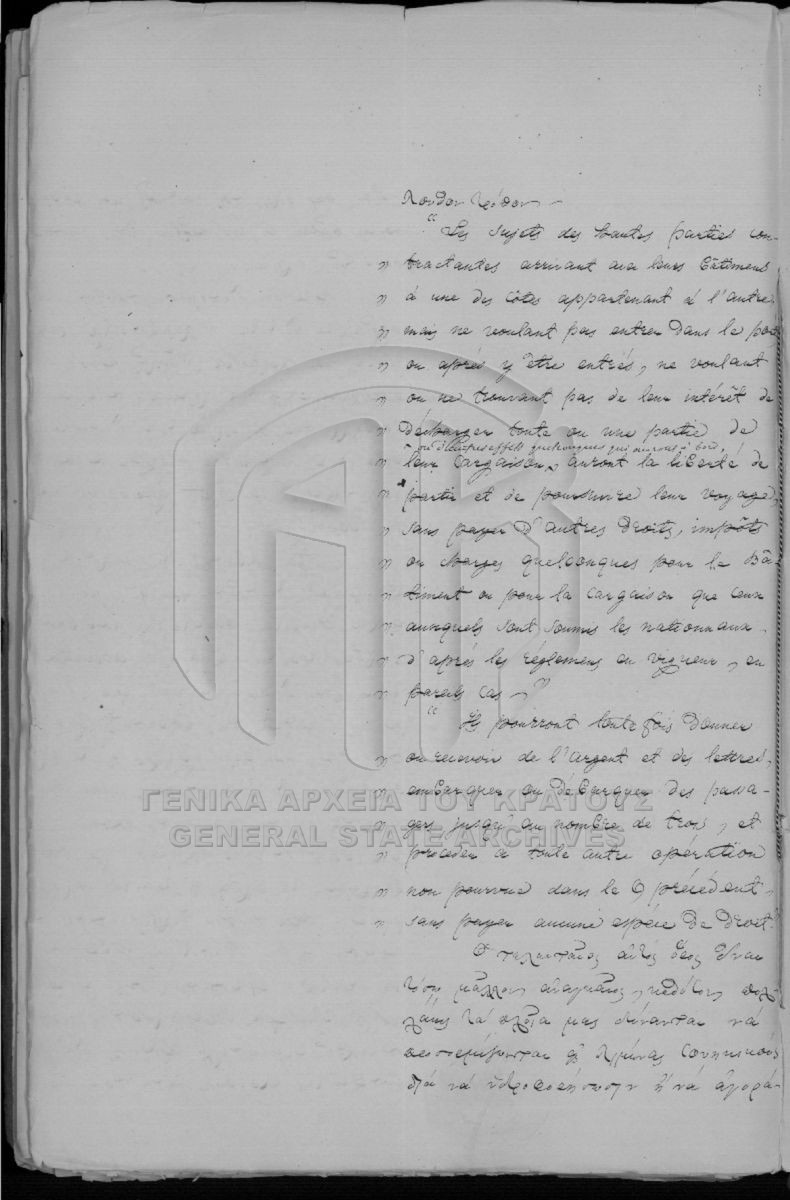 λουθον τρόπον. –
“Les sujets des hautes parties con-
” tractantes arrivant avec leurs bâtimens
” à une des côtes appartenant à l'autre
” mais ne voulant pas entrer dans le port
” ou après y être entrés, ne voulant
” ou ne trouvant pas de leur intérêt de
” décharger toute ou une partie de
ou d'autres effets quelconques qui auront à bord,
” leur cargaison, auront la liberté de
” partir et de poursuivre leur voyage,
” sans payer d'autres droits, impôts
” ou charges quelconques pour le Bâ-
” timent ou pour la cargaison que ceux
” auxquels sont soumis les nationaux
” d'après les réglemens en vigueur, en
” pareils cas. ”
“Ils pourront toutefois donner
” ou recevoir de l'argent et des lettres,
” embarquer ou débarquer des passa-
” gers jusqu'au nombre de trois, et
” proceder a toute autre operation
” non pourvue dans le § précédent,
” sans payer aucune espèce de droit.”
Ὁ τελευταῖος αὐτὸς ὅρος εἶναι
τόσῳ μᾶλλον ἀναγκαῖος, καθότι πολ-
λάκις τὰ πλοῖα μας δύνανται νὰ
λιμένας
διὰ νὰ ἢ νὰ ἀγορά-
ΓΕΝΙΚΑ ΑΡΧΕΙΑ ΤΟΥ ΚΡΑΤΟΥΣ
GENERAL STATE ARCHIVES